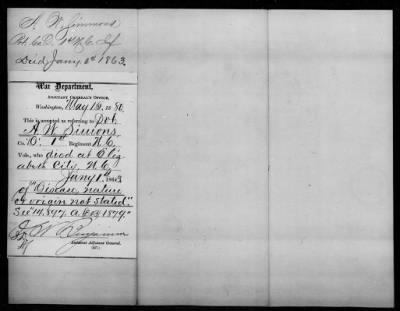 A. W. Simmons
Pvt. Co. D. 1st N.C. Inf
Died Jany. 1st 1863.
War Department,
ADJUTANT GENERAL'S OFFICE,
Washington, May 18 1880
This is accepted as referring to Pvt.
A. W. Simons,
Co. "D". 1st Regiment N.C.
Vols., who died at Eliz
abeth City, N.C.
Jany 1st 1863
of "Disease, nature
or origin not stated"
1879."
Benjamin
Assistant Adjutant General.